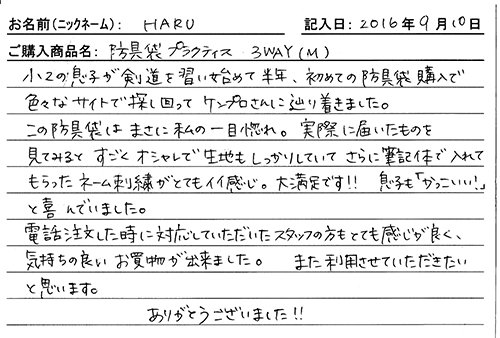 お名前(ニックネーム): HARU 記入日: 2016年9月10日
ご購入商品名: 防具袋プラクティス 3WAY(M)
小2の息子が剣道を習い始めて半年、初めての防具袋購入で
色々なサイトで探し回って ケンプロさんに辿り着きました。
この防具袋は まさに私の一目惚れ。 実際に届いたものを
見てみると すごく オシャレで生地もしっかりしていて さらに筆記体で入れて
もらったネーム刺繍がとてもイイ感じ。大満足です!! 息子も「かっこいい!」
と喜んでいました。
電話注文した時に対応していただいたスタッフの方もとても感じが良く、
気持ちの良い お買物が出来ました。 また利用させていただきたい
と思います。
ありがとうございました!!